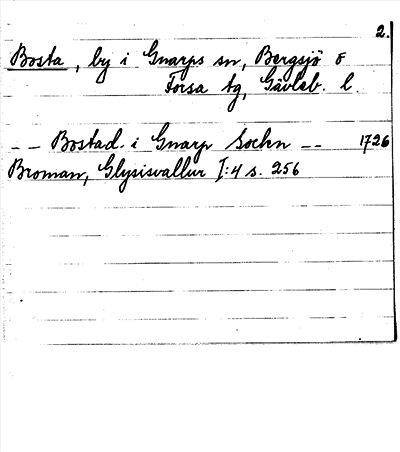 2.
Bosta, by i Gnarps sn, Bergsjö o
Forsa tg, Gävleb. l.
-- Bostad. i Gnarp Sochn -- 1726
Broman, Glysisvallur I:4 s. 256